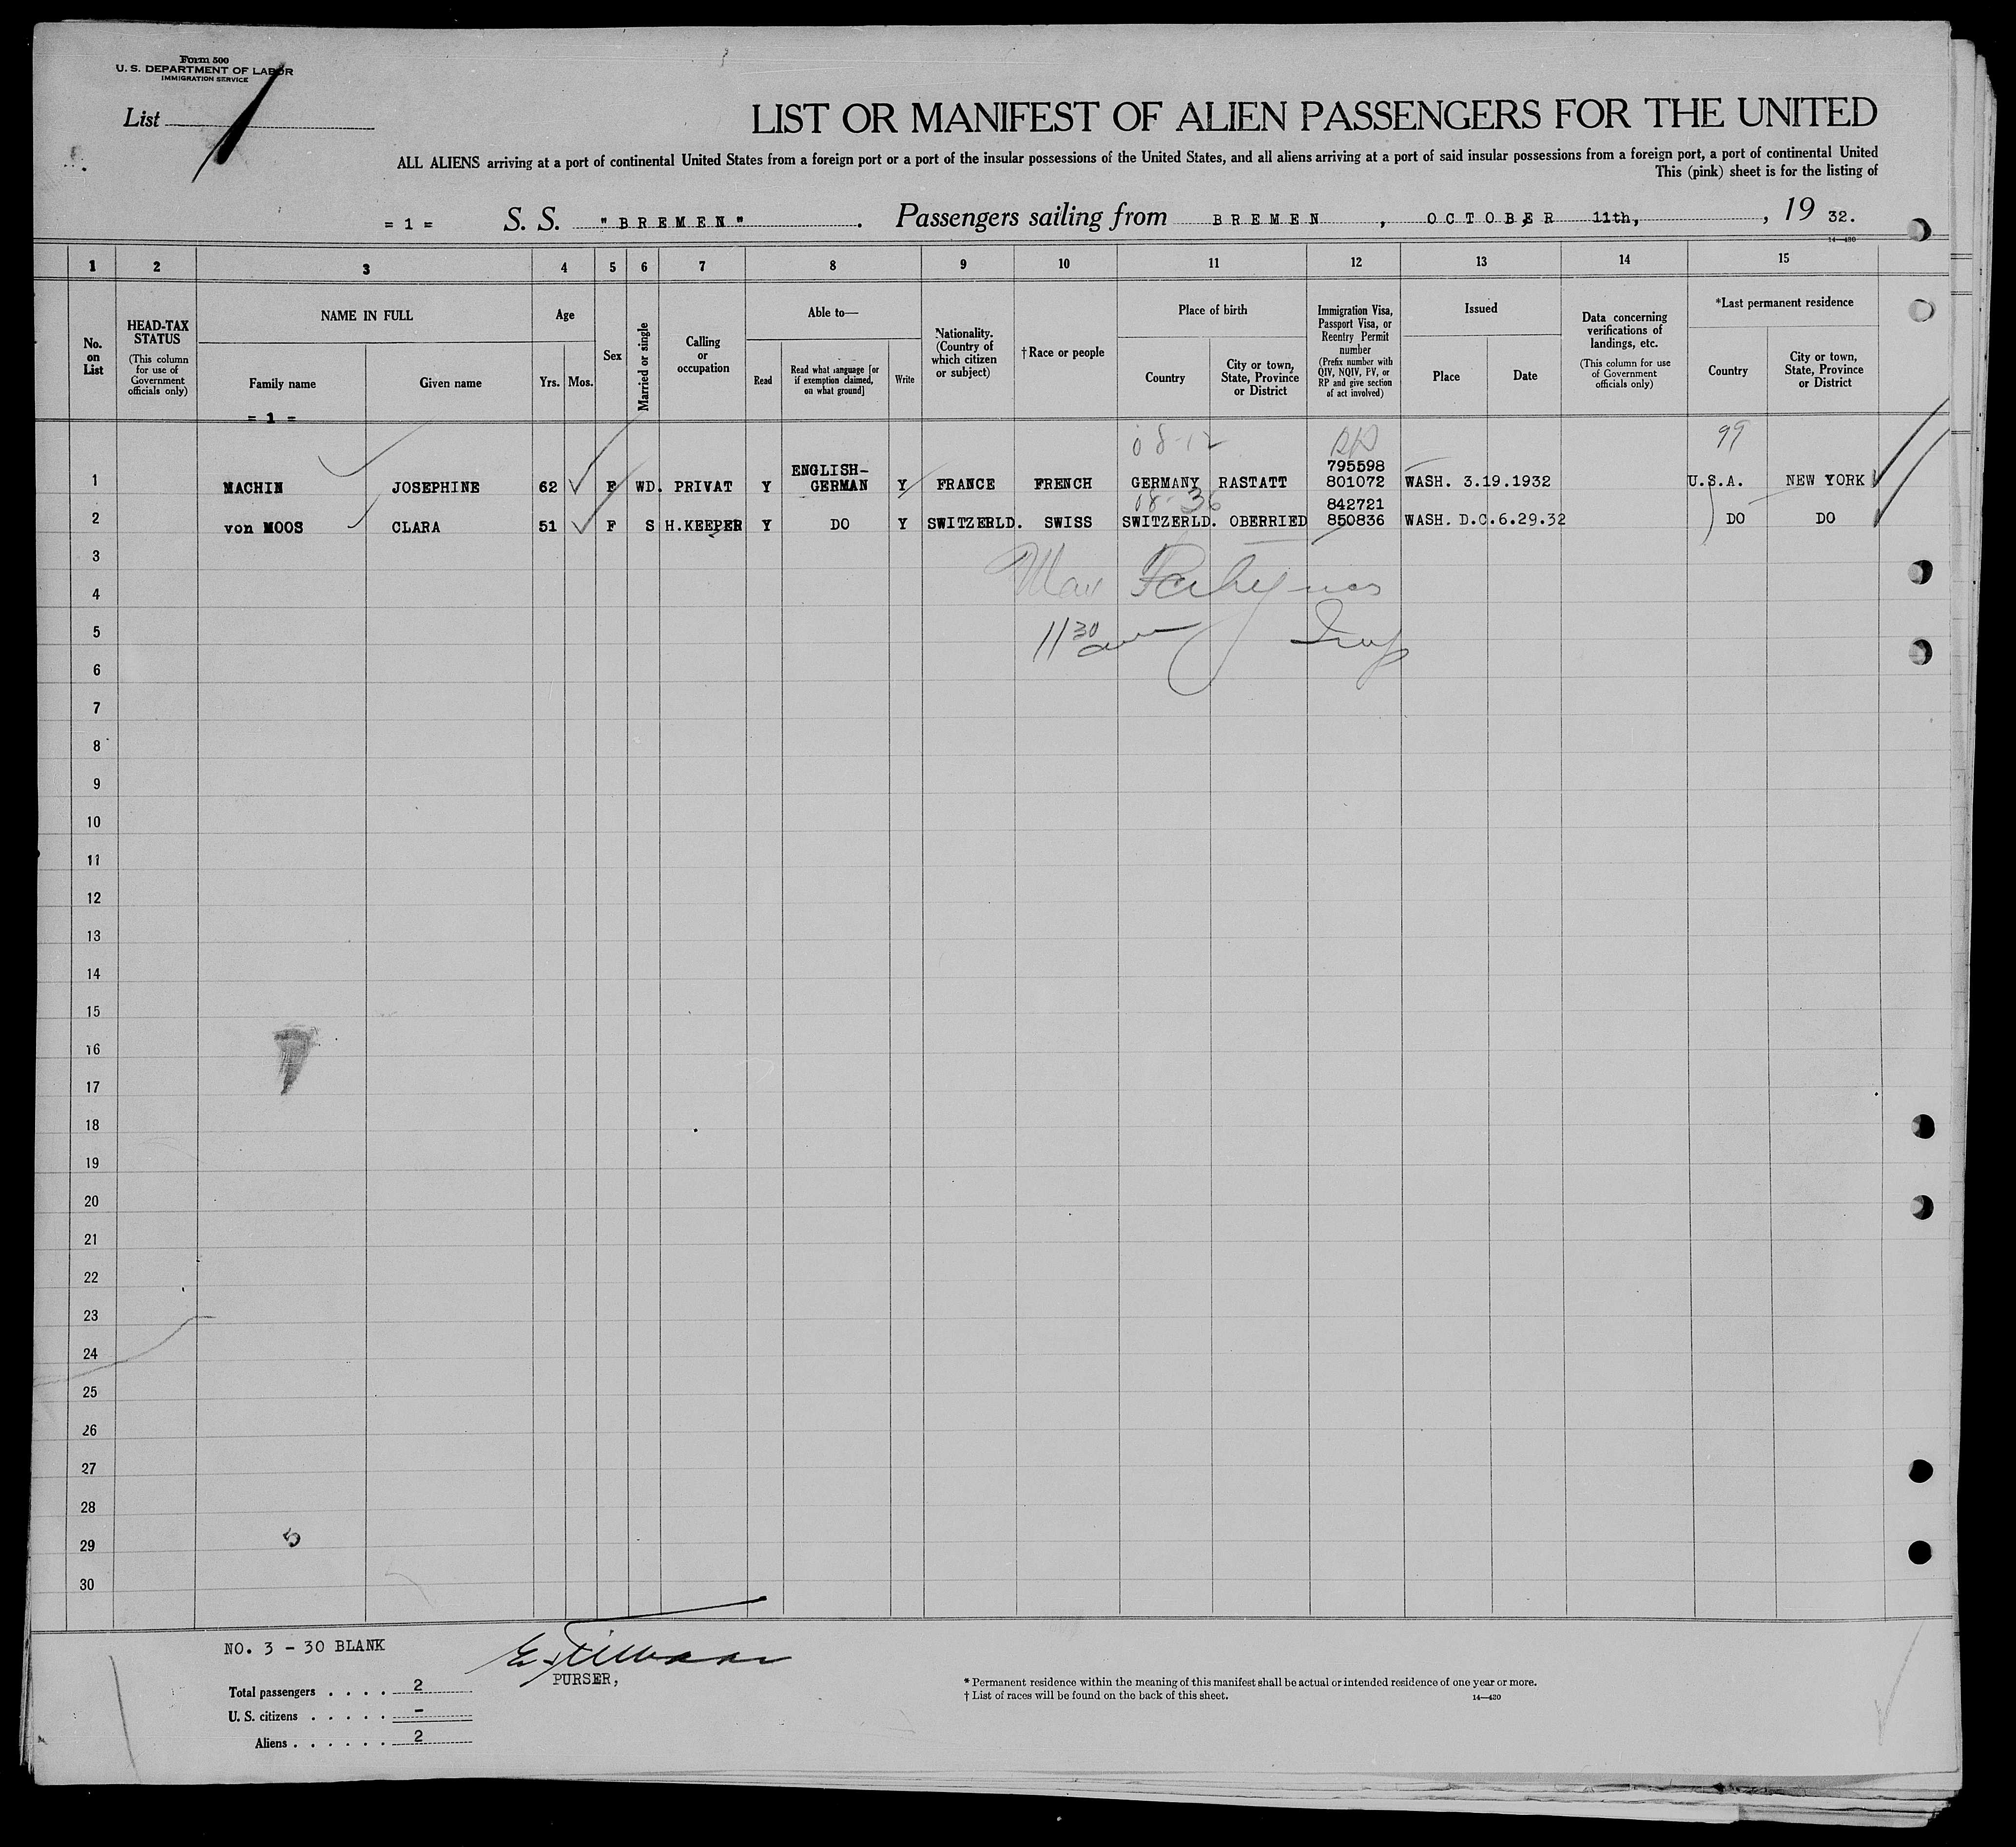 Form 500
U. S. DEPARTMENT OF LABOR
IMMIGRATION SERVICE
List 1
LIST OR MANIFEST OF ALIEN PASSENGERS FOR THE UNITED
ALL ALIENS arriving at a port of continental United States from a foreign port or a port of the insular possessions of the United States, and all aliens arriving at a port of said insular possessions from a foreign port, a port of continental United
This (pink) sheet is for the listing of
= 1 = S. S. "BREMEN" . Passengers sailing from BREMEN , OCTOBER 11th, , 19 32.
14—430
1 2 3 4 5 6 7 8 9 10 11 12 13 14 15
No. on List
HEAD-TAX STATUS
(This column for use of Government officials only)
NAME IN FULL
Family name
Given name
Age
Yrs. Mos.
Sex
Married or single
Calling or occupation
Able to—
Read
Read what language [or if exemption claimed, on what ground]
Write
Nationality. (Country of which citizen or subject)
† Race or people
Place of birth
Country
City or town, State, Province or District
Immigration Visa, Passport Visa, or Reentry Permit number
(Prefix number with QIV, NQIV, PV, or RP and give section of act involved)
Issued
Place
Date
Data concerning verifications of landings, etc.
(This column for use of Government officials only)
*Last permanent residence
Country
City or town, State, Province or District
= 1 =
08-12 RP 99
795598
1 MACHIN JOSEPHINE 62 F WD. PRIVAT Y ENGLISH-GERMAN Y FRANCE FRENCH GERMANY RASTATT 801072 WASH. 3.19.1932 U.S.A. NEW YORK
08-36 842721
2 von MOOS CLARA 51 F S H.KEEPER Y DO Y SWITZERLD. SWISS SWITZERLD. OBERRIED 850836 WASH. D.C.6.29.32 DO DO
3
4 Max
5 11 30 am Insp
6
7
8
9
10
11
12
13
14
15
16
17
18
19
20
21
22
23
24
25
26
27
28
29 5
30
NO. 3 - 30 BLANK
PURSER,
Total passengers . . . . 2
U. S. citizens . . . . . -
Aliens . . . . . . 2
* Permanent residence within the meaning of this manifest shall be actual or intended residence of one year or more.
† List of races will be found on the back of this sheet. 14—430